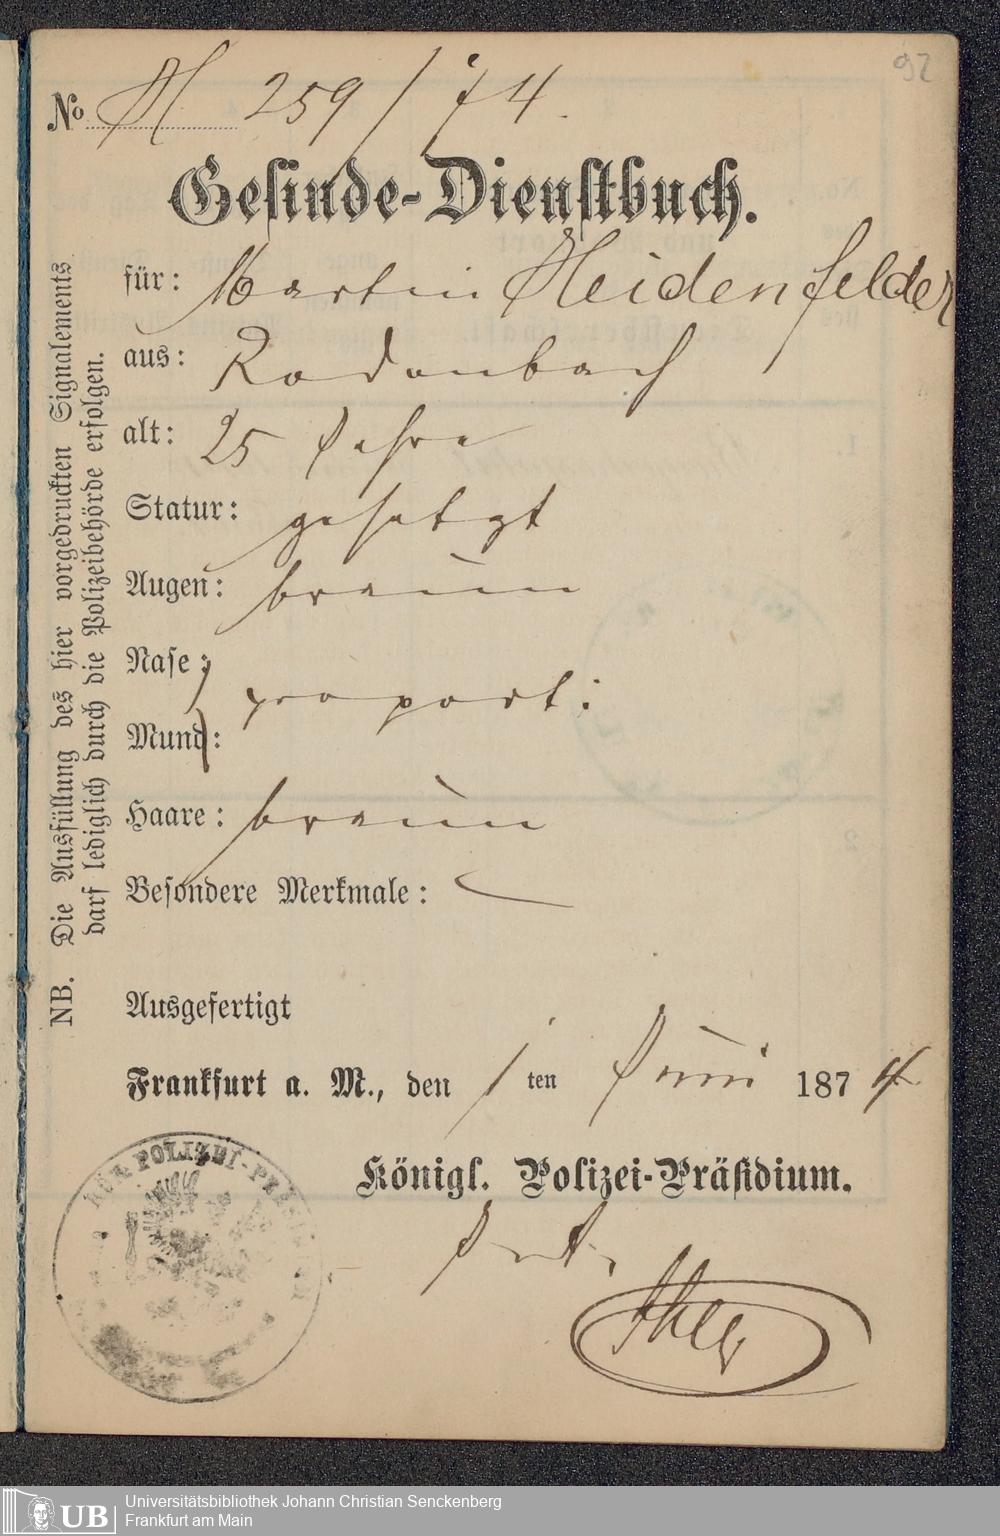 92
No H 259/74.
Gesinde-Dienstbuch.
für: Martin Heidenfelder
aus: Rodenbach
alt: 25 Jahre
Statur: gesetzt
Augen: braun
Nase:
proport:
Mund:
Haare: braun
Besondere Merkmale: —
Ausgefertigt
Frankfurt a. M., den 1 ten Juni 1874
Königl. Polizei-Präsidium.
NB. Die Ausfüllung des hier vorgedruckten Signalements
darf lediglich durch die Polizeibehörde erfolgen.
POLIZEI-PRÄSI
UB
Universitätsbibliothek Johann Christian Senckenberg
Frankfurt am Main